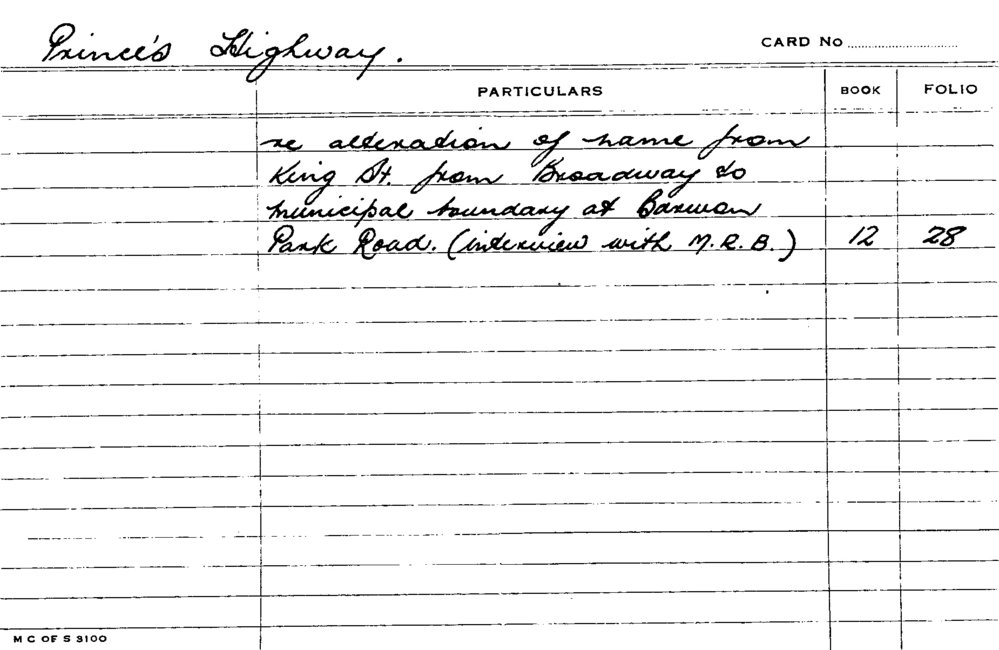 Prince's Highway.
CARD No
PARTICULARS BOOK FOLIO
re alteration of name from
King St. from Broadway to
municipal boundary at Barwon
Park Road. (interview with M.R.B.) 12 28
M C OF S 3100